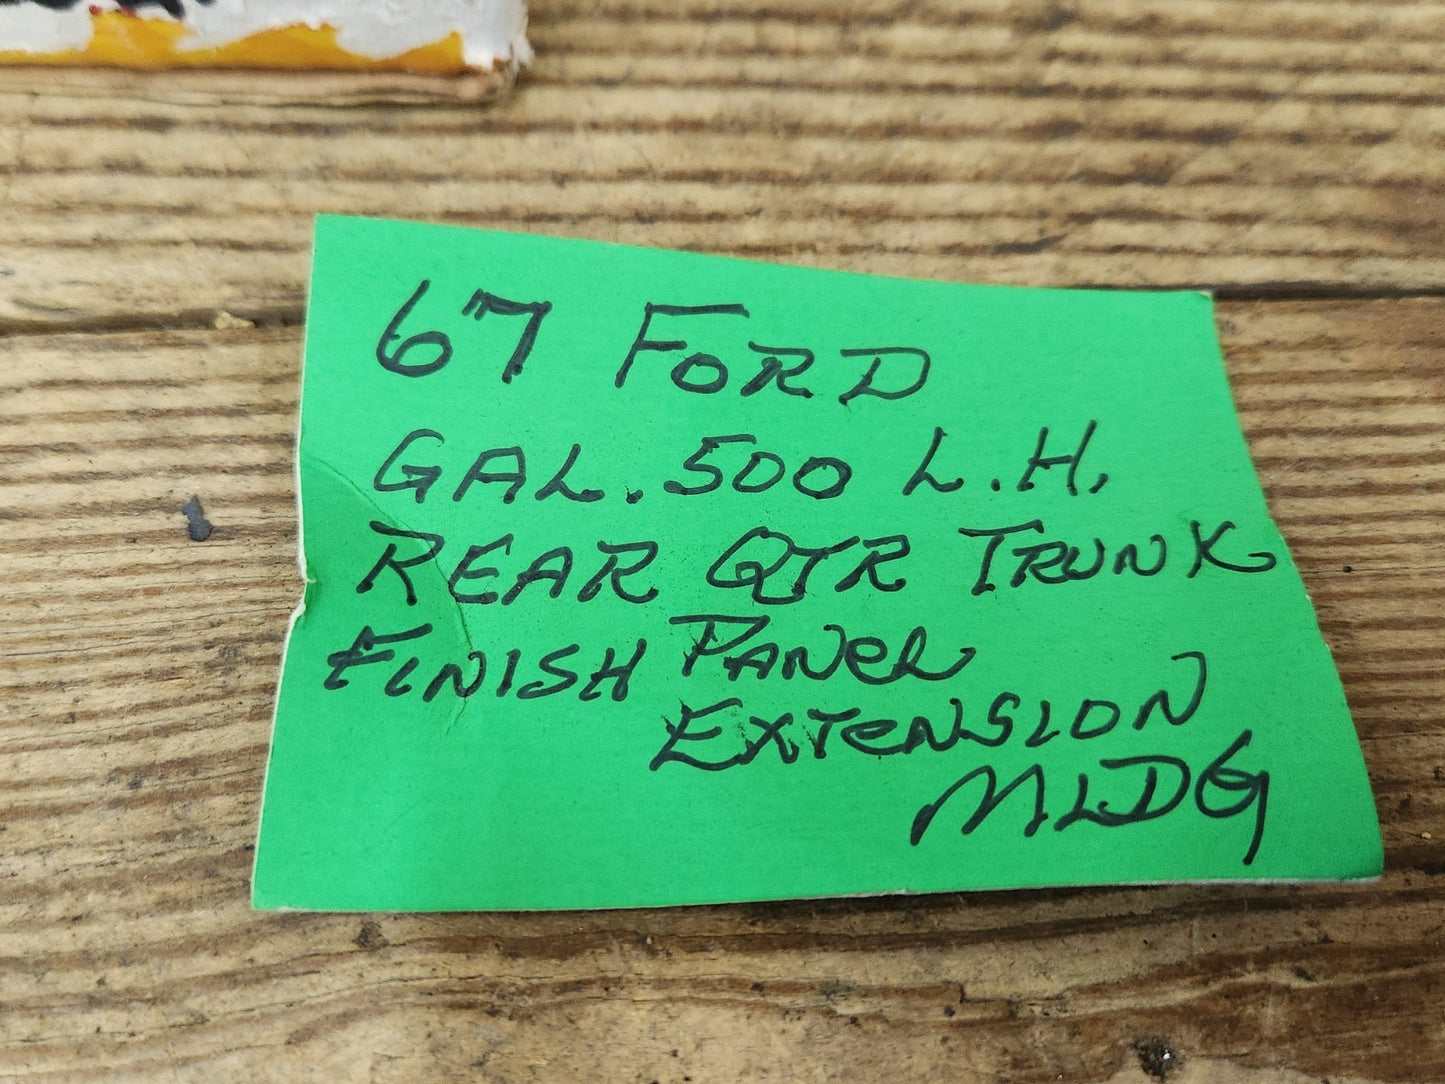 67 FORD
GAL. 500 L.H.
REAR QTR TRUNK
FINISH PANEL
EXTENSION
MLDG